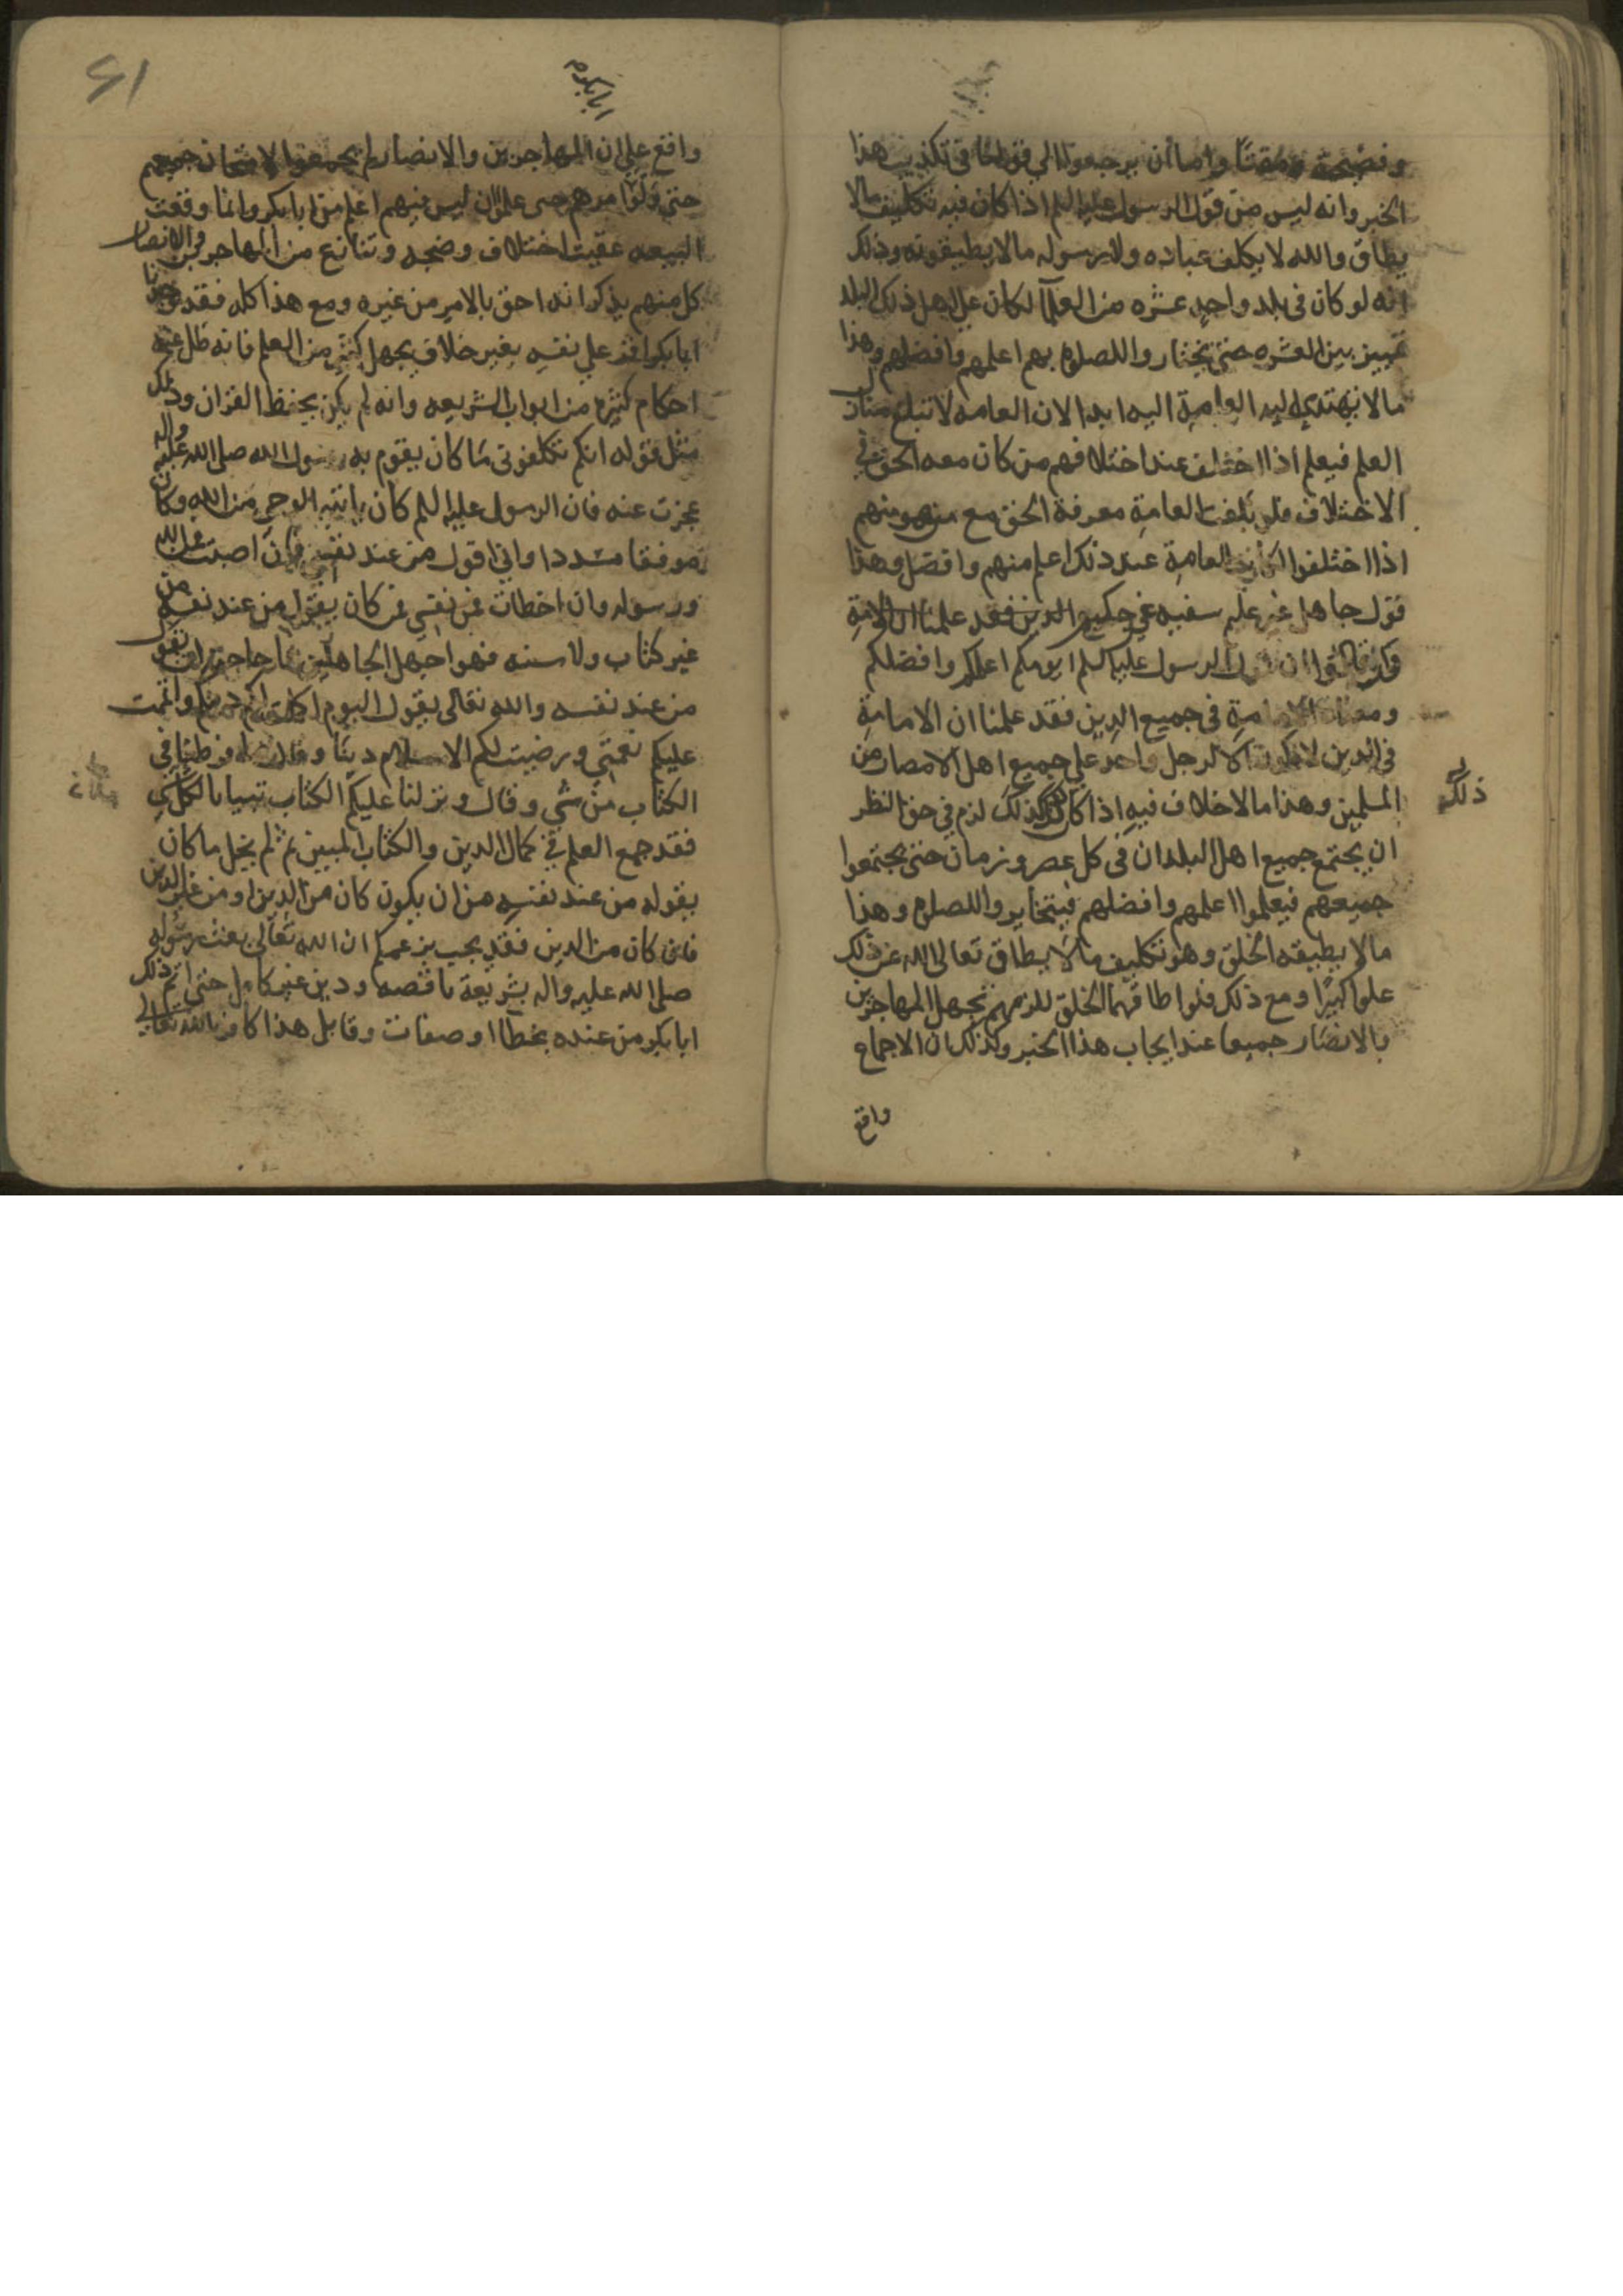 وفضيحة ومقتا واما ان يرجعوا الي قولنا في تكذيب هذا
الخبر وانه ليس من قول الرسول عليه السلم اذا كان فيه تكليف مالا
يطاق والله لا يكلف عباده ولا رسوله مالا يطيقونه وذلك
انه لو كان في بلد واحد عشره من العلما لكان علي اهل ذلك البلد
تمييز بين العشره حتى يختاروا للصلوه بهم اعلمهم وافضلهم وهذا
مالا يهتدي العامة اليه ابدا لان العامه لا تبلغ منازل
العلم فيعلم اذا اختلف عند اختلافهم من كان معه الحق في
الاختلاف فلو بلغت العامة معرفة الحق مع من هو منهم
اذا اختلفوا لكانت العامة عند ذلك اعلم منهم وافضل وهذا
قول جاهل غير عليم سفيه غير حكيم فقد علمنا ان الامة
قالوا ان الرسول عليه السلم يومكم اعلمكم وافضلكم
ومعنا الامامة في جميع الدين فقد علمنا ان الامامة
في الدين لا تكون الا لرجل واحد علي جميع اهل الامصار من
المسلمين وهذا مالا خلاف فيه اذا كان ذلك كذلك لزم في حق النظر
ذلك
ان يجتمع جميع اهل البلدان في كل عصر وزمان حتى يجتمعوا
جميعهم فيعلموا اعلمهم وافضلهم فيتخايروا للصلوه وهذا
مالا يطيقه الخلق وهو تكليف مالا يطاق تعالى الله عن ذلك
علوا كبيرا ومع ذلك فلو اطاقها الخلق للزمهم تجهل المهاجرين
بالانصار جميعا عند ايجاب هذا الخبر وكذلك ان الاجماع
واقع
61
ابابكر
واقع علي ان المهاجرين والانصار لم يجمعوا لامتحان جميعهم
حتى ولوا امرهم حتى علموا ان ليس فيهم اعلم من ابابكر وانما وقعت
البيعه عقيب اختلاف وضجه وتنازع من المهاجرين والانصار
كل منهم يذكر انه احق بالامر من غيره ومع هذا كله فقد وجدنا
ابابكر اقر علي نفسه بغير خلاف بجهل كثير من العلم فانه ظل عنه
احكام كثيره من ابواب الشريعه وانه لم يكن يحفظ القران وذلك
مثل قوله انكم تكلفوني ما كان يقوم به رسول الله صلى الله عليه واله
عجزت عنه فان الرسول عليه السلم كان ياتيه الوحي من الله وكان
موفقا مسددا واني اقول من عند نفسي فان اصبت فمن الله
ورسوله وان اخطات فمن نفسي فمن كان يقول من عند نفسه من
غير كتاب ولا سنه فهو اجهل الجاهلين ما حاجته ان يقول
من عند نفسه والله تعالى يقول اليوم اكملت لكم دينكم واتممت
عليكم نعمتي ورضيت لكم الاسلام دينا وقال ما فرطنا في
الكتاب من شي وقال ونزلنا عليك الكتاب تبيانا لكل شي
فقد جمع العلم في كمال الدين والكتاب المبين ثم لم يخل ما كان
يقوله من عند نفسه من ان يكون كان من الدين او من غير الدين
فان كان من الدين فقد يجب بزعمكم ان الله تعالى بعث رسوله
صلى الله عليه واله بشريعة ناقصه ودين غير كامل حتى اتم ذلك
ابابكر من عنده بخطا او صفات وقايل هذا كافر بالله تعالى